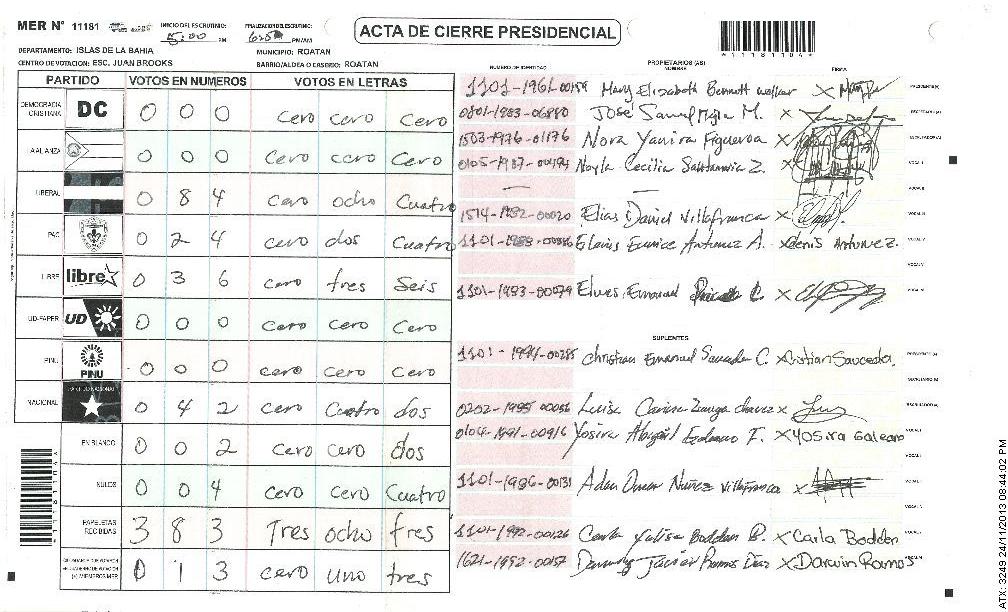 MER N° 11181 INICIO DEL ESCRUTINIO: 5:00 PM FINALIZACION DEL ESCRUTINIO: PM/AM
ACTA DE CIERRE PRESIDENCIAL
*1118110A*
DEPARTAMENTO: ISLAS DE LA BAHIA MUNICIPIO: ROATAN
CENTRO DE VOTACION: ESC. JUAN BROOKS BARRIO/ALDEA O CASERIO: ROATAN
PARTIDO VOTOS EN NUMEROS VOTOS EN LETRAS
DEMOCRACIA CRISTIANA DC 0 0 0 cero cero cero
ALIANZA 0 0 0 cero cero cero
LIBERAL 0 8 4 cero ocho cuatro
PAC 0 2 4 cero dos cuatro
LIBRE libre 0 3 6 cero tres seis
UD-FAPER UD 0 0 0 cero cero cero
PINU PINU 0 0 0 cero cero cero
NACIONAL 0 4 2 cero cuatro dos
EN BLANCO 0 0 2 cero cero dos
NULOS 0 0 4 cero cero cuatro
PAPELETAS RECIBIDAS 3 8 3 Tres ocho tres
0 1 3 cero uno tres
NUMERO DE IDENTIDAD PROPIETARIOS (AS) NOMBRE FIRMA
1101-1961-00159 Mary Elizabeth Bennett Walker X PRESIDENTE(A)
0801-1983-06880 José M. X SECRETARIO(A)
1503-1976-01176 Nora Yanira Figueroa X ESCRUTADOR(A)
Nayla Cecilia Z. X VOCAL I
— — VOCAL II
1514-1982-00020 Elias Daniel Villafranca X VOCAL III
Eunice Antunez A. X denis Antunez. VOCAL IV
VOCAL V
1101-1983-00079 Elmes Emanuel C. X VOCAL VI
SUPLENTES
1101-1994-00285 Christian Emanuel C. X Cristian Sauceda. PRESIDENTE(A)
SECRETARIO(A)
0202-1985-00056 Luisa Carina Zuniga Chavez X ESCRUTADOR(A)
0104-1991-00916 Yosira Abigail Galeano F. X Yosira Galeano VOCAL I
VOCAL II
1101-1986-00131 Adan Omar Nuñez Villafranca X VOCAL III
1101-1992-00126 Carla Yulisa Bodden B. X Carla Bodden
1621-1992-00157 Javier Ramos Diaz X Darwin Ramos
ATX: 3249 24/11/2013 08:44:02 PM